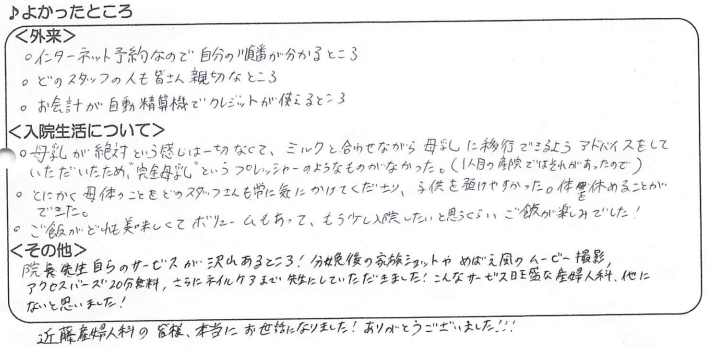 ♪よかったところ
<外来>
○インターネット予約なので自分の順番が分かるところ
○どのスタッフの人も皆さん親切なところ
○お会計が自動精算機でクレジットが使えるところ
<入院生活について>
○母乳が絶対という感じは一切なくて、ミルクと合わせながら母乳に移行できるようアドバイスをして
いただいたため、"完全母乳"というプレッシャーのようなものがなかった。(1人目の産院ではそれがあったので)
○とにかく母体のことをどのスタッフさんも常に気にかけてくださり、子供を預けやすかった。体を休めることが
できた。
○ご飯がどれも美味しくてボリュームもあって、もう少し入院したいと思うくらいご飯が楽しみでした!
<その他>
院長先生自らのサービスが沢山あるところ!分娩後の家族ショットやめばえ風のムービー撮影,
アクセスバーズ20分無料,さらにネイルケアまで先生にしていただきました!こんなサービス旺盛な産婦人科、他に
ないと思いました!
近藤産婦人科の皆様、本当にお世話になりました!ありがとうございました!!!